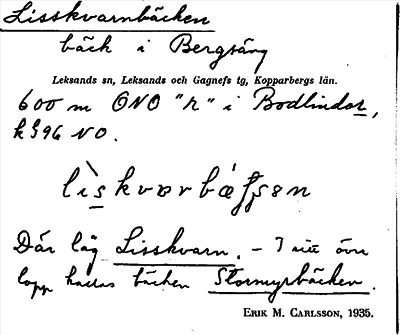 Lisskvarnbäcken
bäck i Bergsäng
Leksands sn, Leksands och Gagnefs tg, Kopparbergs län.
600 m ONO "r" i Bodlindor,
k§96 NO.
Där låg Lisskvarn. – I sitt övre
lopp kallas bäcken Stormyrbäcken.
ERIK M. CARLSSON, 1935.